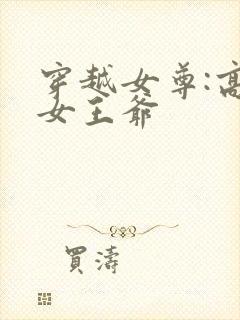 穿越女尊:高
女王爺
買濤